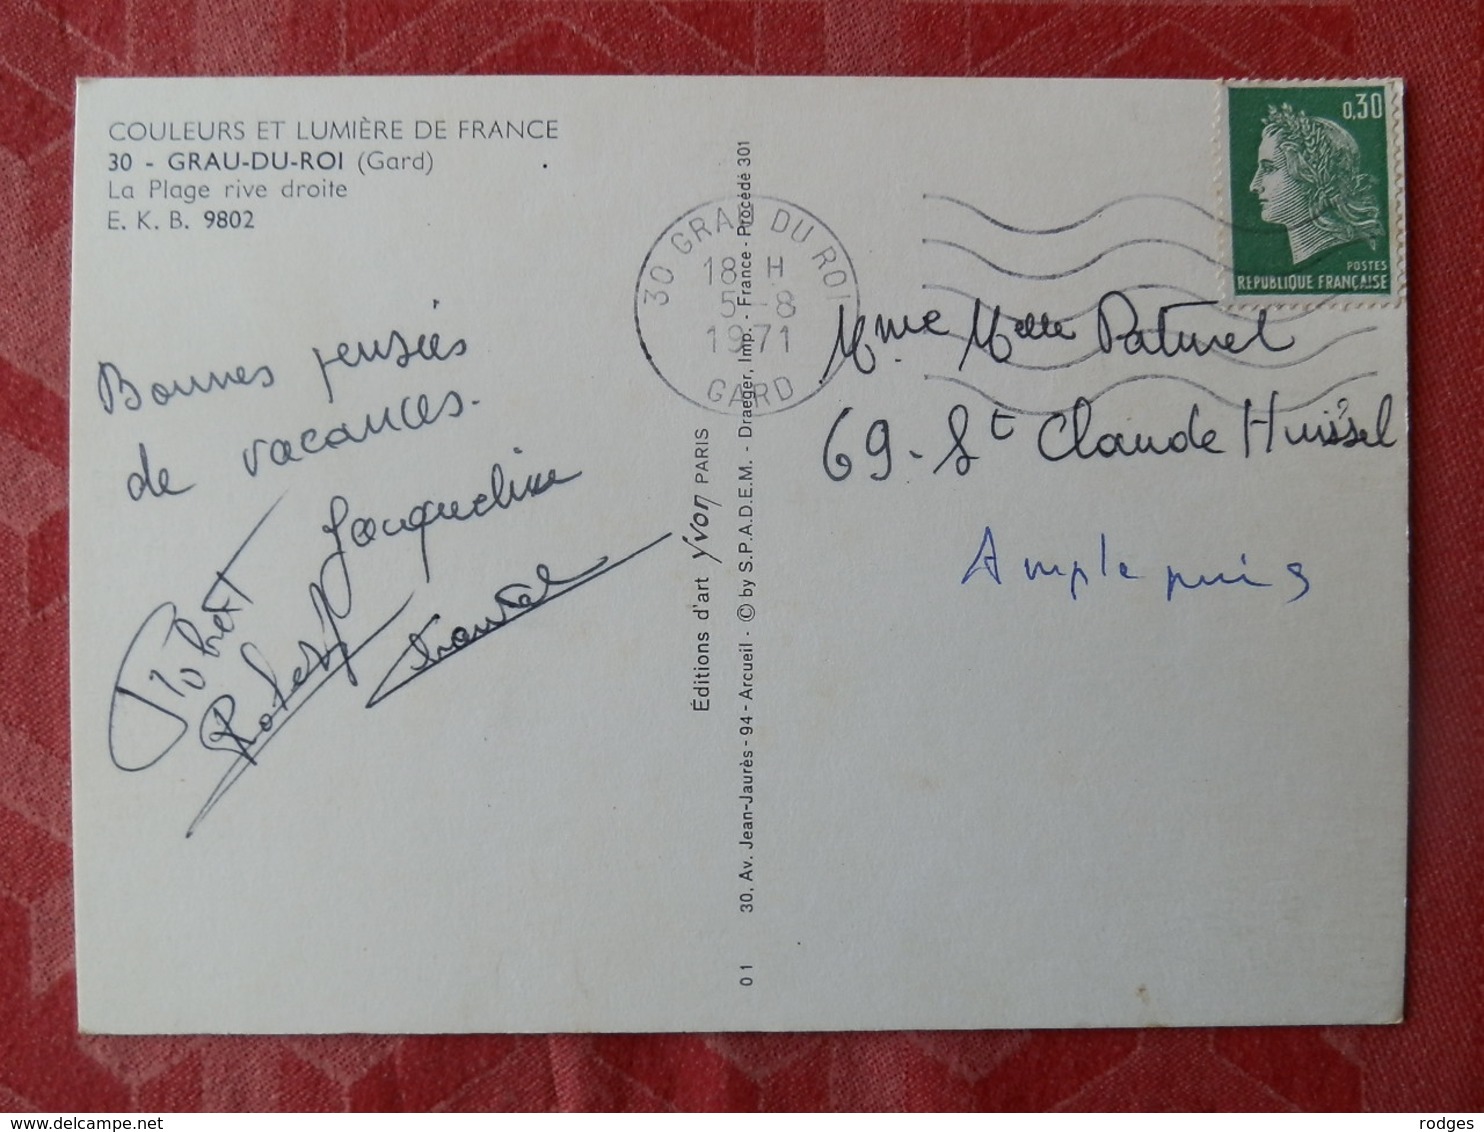 COULEURS ET LUMIÈRE DE FRANCE
30 - GRAU-DU-ROI (Gard)
La Plage rive droite
E. K. B. 9802
Bonnes pensées
de vacances.
Jacqueline
Robert
Éditions d'art yvon PARIS
30, Av. Jean-Jaurès - 94 - Arcueil - © by S.P.A.D.E.M. - Draeger, Imp. - France - Procédé 301
0 1
30 GRAU DU ROI
18 H
5 - 8
1971
GARD
0,30
POSTES
REPUBLIQUE FRANÇAISE
Mme Melle Paturel
69 - St Claude Huissel
Amplepuis
rodges